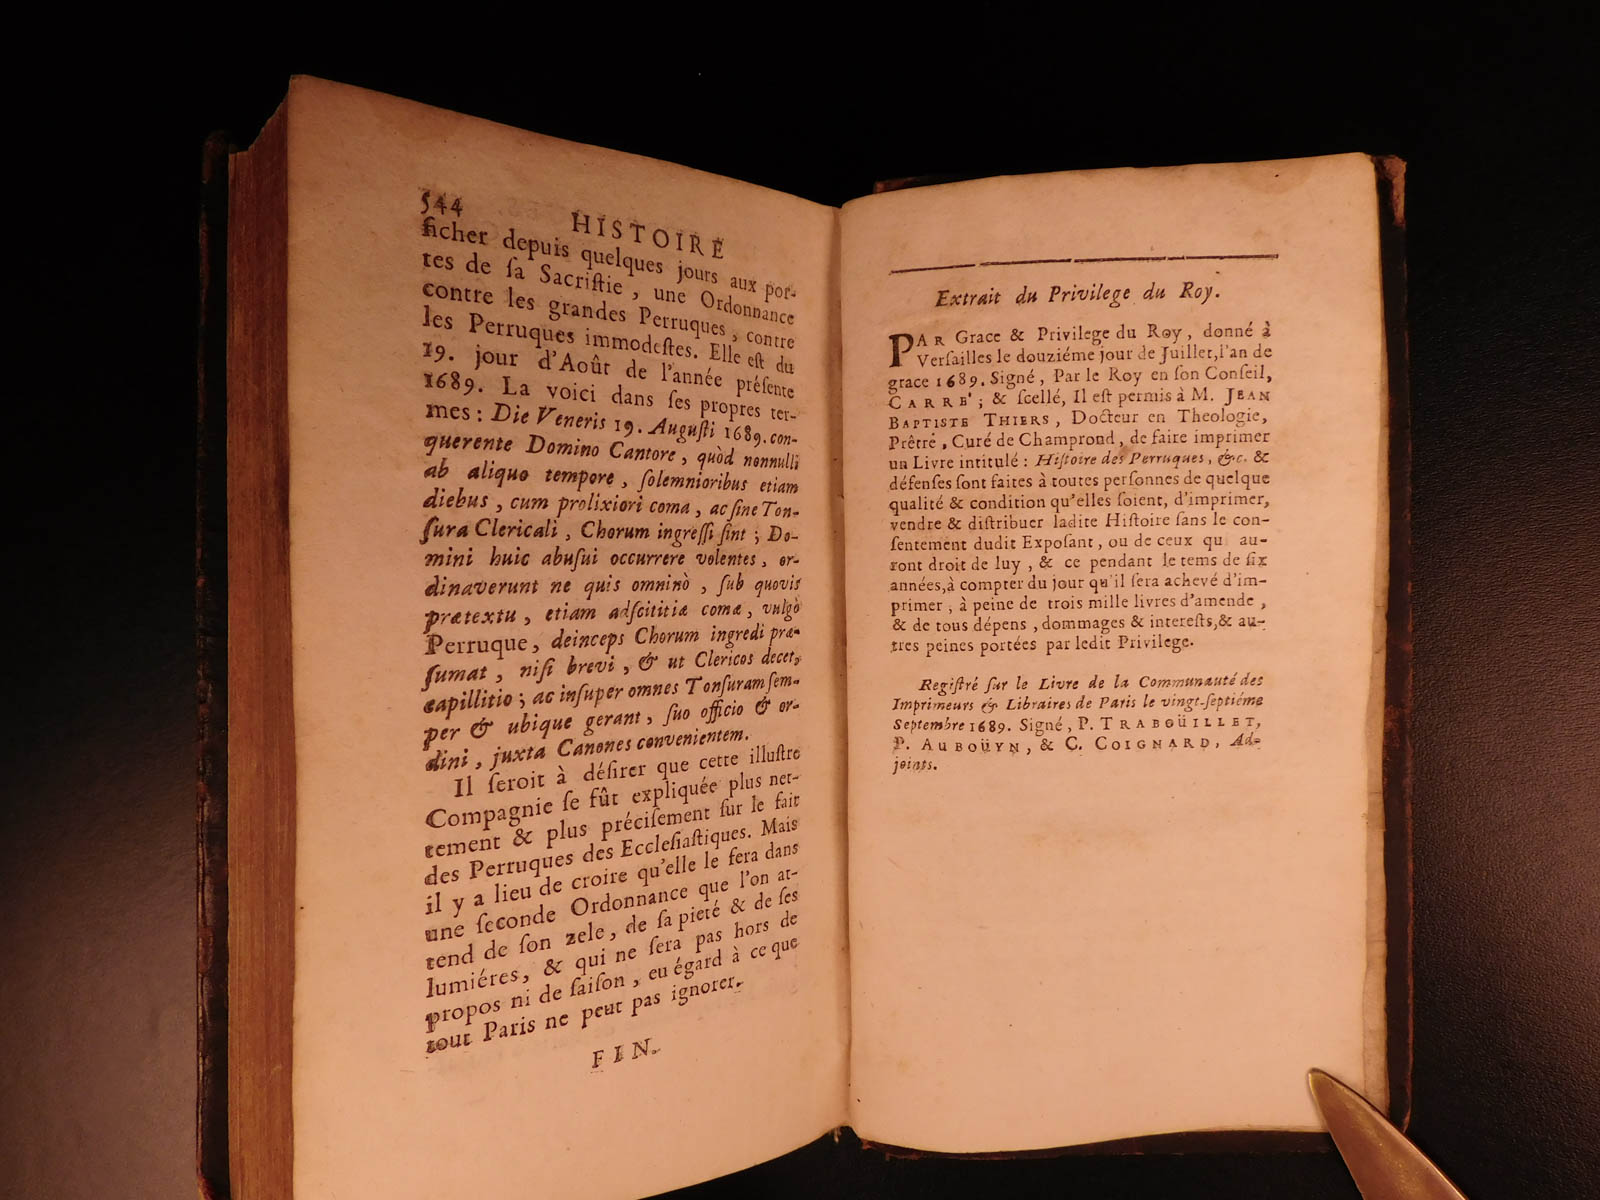 544 HISTOIRE
ficher depuis quelques jours aux por-
tes de ſa Sacriſtie, une Ordonnance
contre les grandes Perruques, contre
les Perruques immodeſtes. Elle eſt du
19. jour d'Août de l'année préſente
1689. La voici dans ſes propres ter-
mes: Die Veneris 19. Auguſti 1689. con-
querente Domino Cantore, quòd nonnulli
ab aliquo tempore, ſolemnioribus etiam
diebus, cum prolixiori coma, ac ſine Ton-
ſura Clericali, Chorum ingreſſi ſint; Do-
mini huic abuſui occurrere volentes, or-
dinaverunt ne quis omninò, ſub quovis
prætextu, etiam adſcititiæ comæ, vulgò
Perruque, deinceps Chorum ingredi præ-
ſumat, niſi brevi, & ut Clericos decet,
capillitio; ac inſuper omnes Tonſuram ſem-
per & ubique gerant, ſuo officio & or-
dini, juxta Canones convenientem.
Il ſeroit à déſirer que cette illuſtre
Compagnie ſe fût expliquée plus net-
tement & plus préciſement ſur le fait
des Perruques des Eccleſiaſtiques. Mais
il y a lieu de croire qu'elle le fera dans
une ſeconde Ordonnance que l'on at-
tend de ſon zele, de ſa pieté & de ſes
lumiéres, & qui ne ſera pas hors de
propos ni de ſaiſon, eu égard à ce que
tout Paris ne peut pas ignorer.
FIN.
Extrait du Privilege du Roy.
PAR Grace & Privilege du Roy, donné à
Verſailles le douziéme jour de Juillet, l'an de
grace 1689. Signé, Par le Roy en ſon Conſeil,
CARRE'; & ſcellé, Il eſt permis à M. JEAN
BAPTISTE THIERS, Docteur en Theologie,
Prêtré, Curé de Champrond, de faire imprimer
un Livre intitulé: Hiſtoire des Perruques, &c. &
défenſes ſont faites à toutes perſonnes de quelque
qualité & condition qu'elles ſoient, d'imprimer,
vendre & diſtribuer ladite Hiſtoire ſans le con-
ſentement dudit Expoſant, ou de ceux qui au-
ront droit de luy, & ce pendant le tems de ſix
années, à compter du jour qu'il ſera achevé d'im-
primer; à peine de trois mille livres d'amende,
& de tous dépens, dommages & intereſts, & au-
tres peines portées par ledit Privilege.
Regiſtré ſur le Livre de la Communauté des
Imprimeurs & Libraires de Paris le vingt-ſeptiéme
Septembre 1689. Signé, P. TRABOÜILLET,
P. AUBOÜYN, & C. COIGNARD, Ad-
joints.